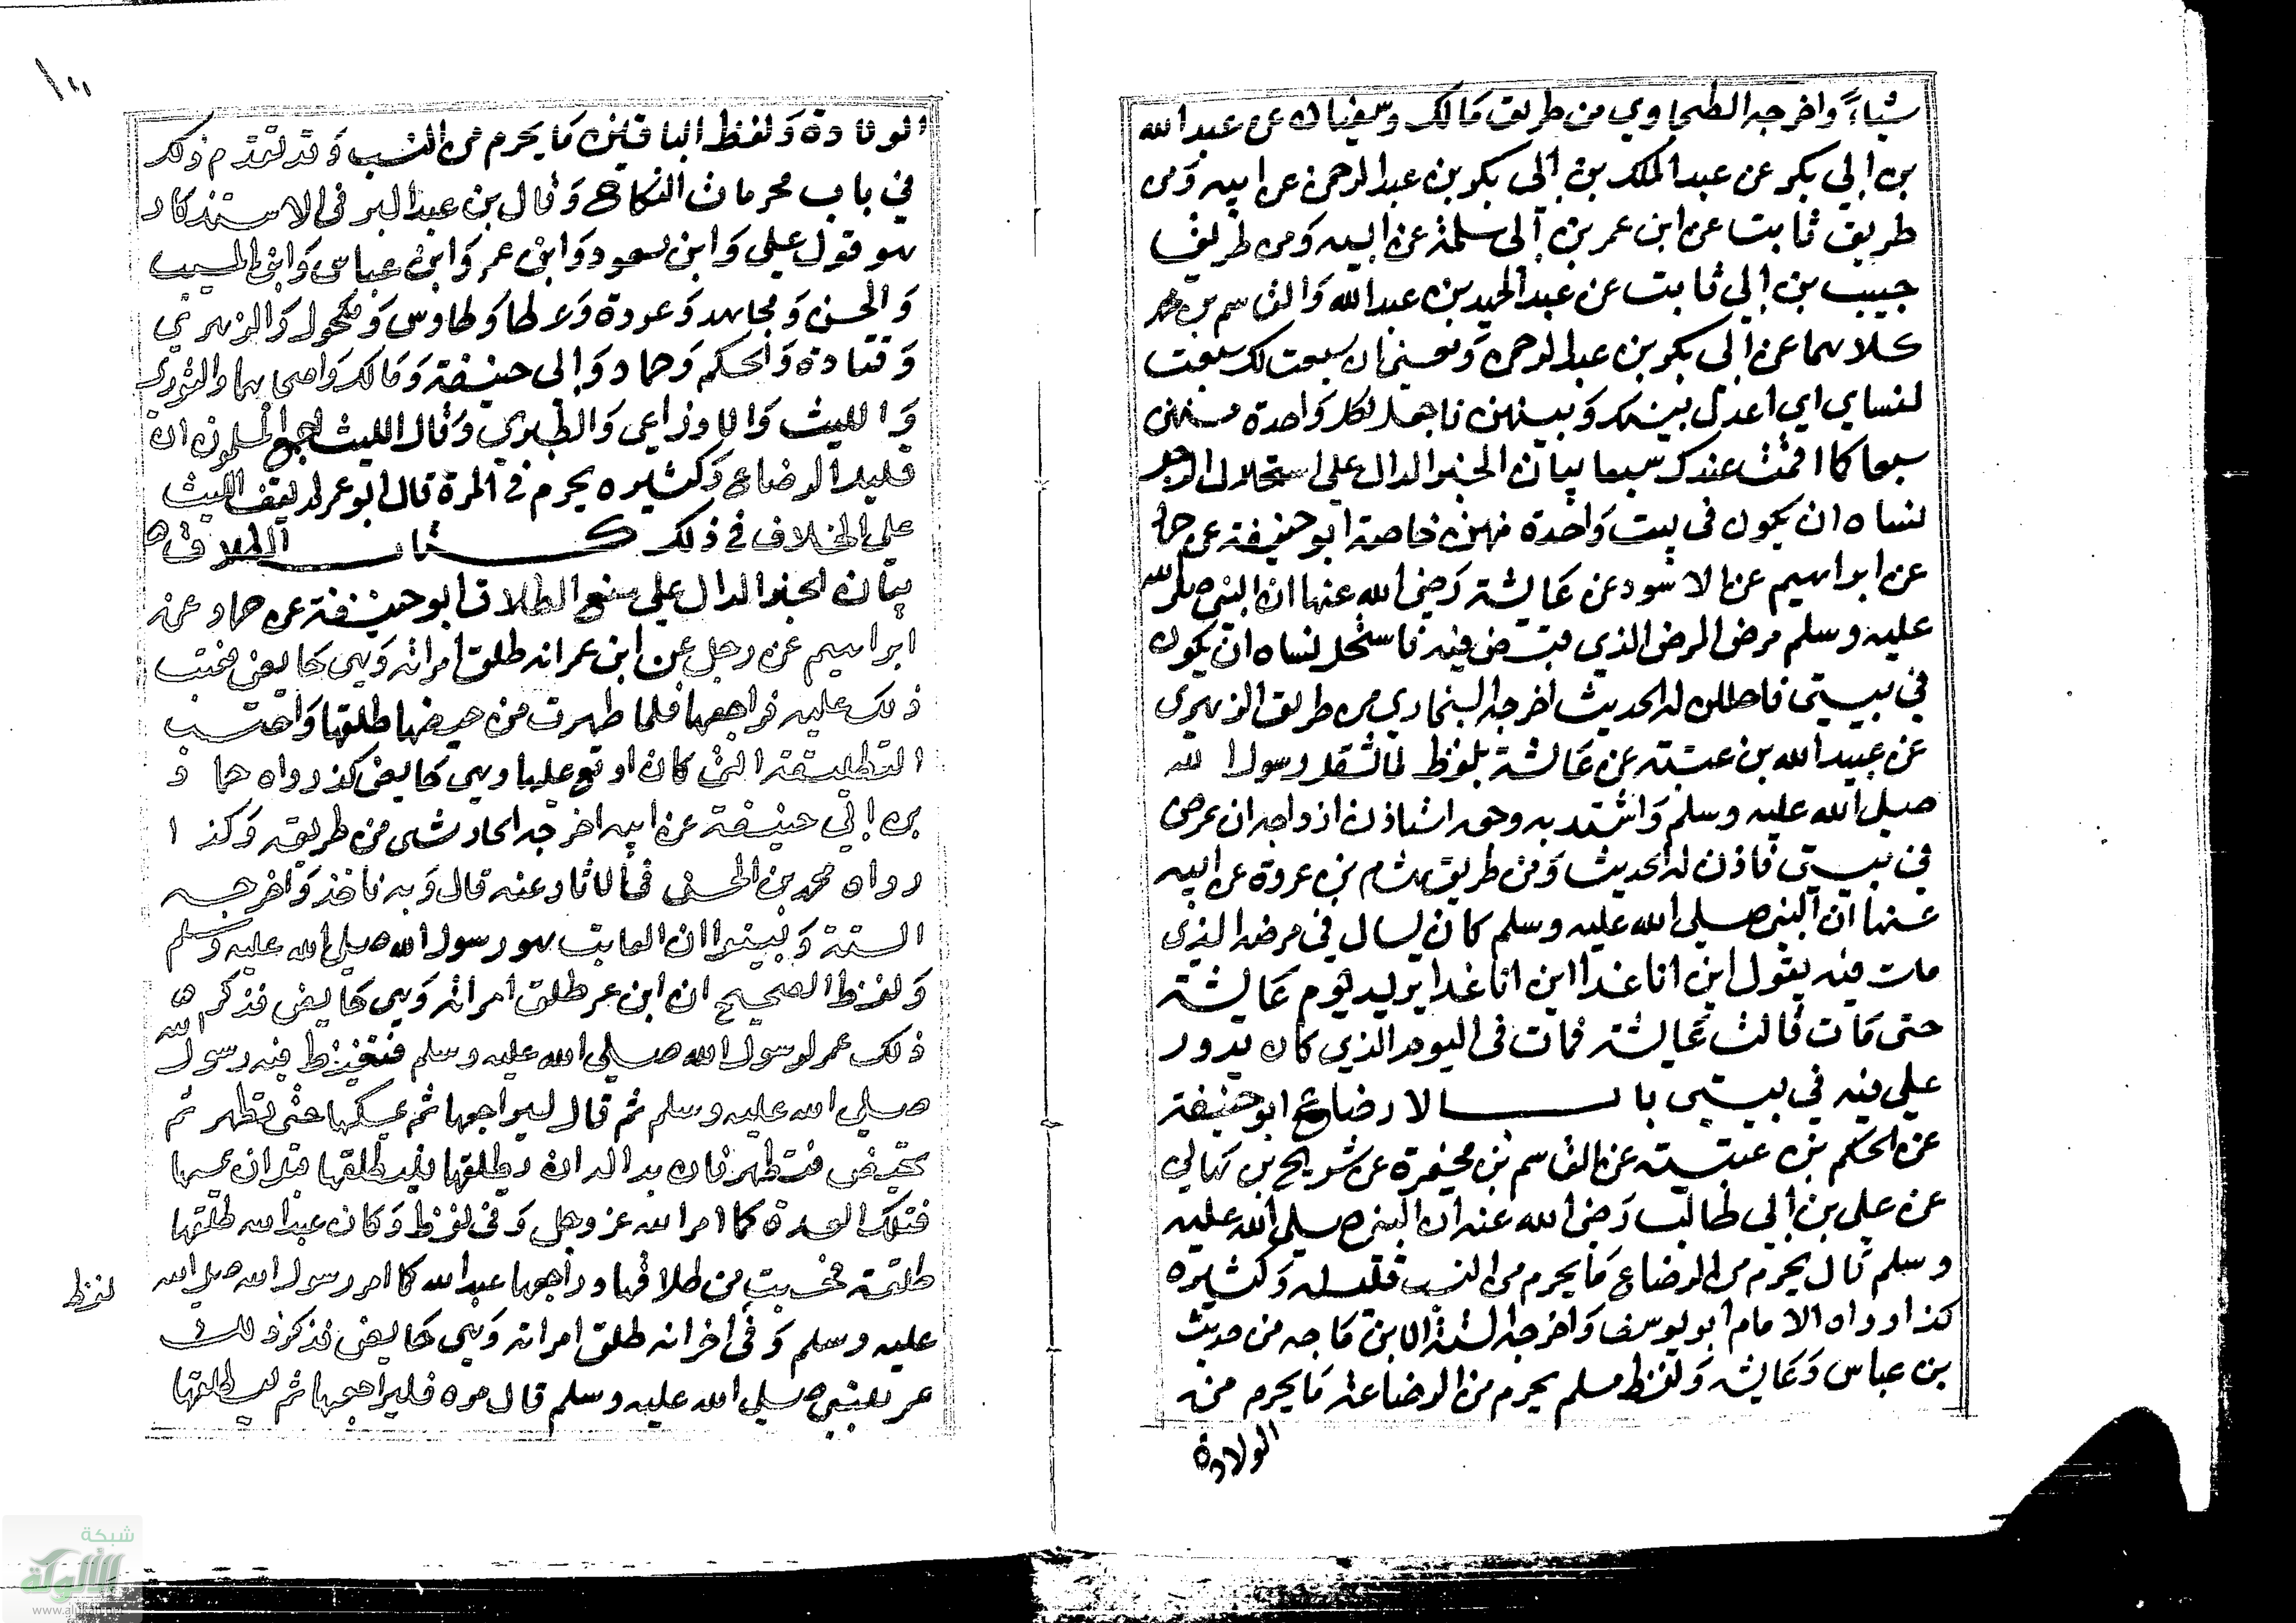 شاءا واخرجه الطحاوي من طريق مالك وسفيان عن عبد الله
بن ابي بكر عن عبد الملك بن ابي بكر بن عبد الرحمن عن ابيه ومن
طريق ثابت عن ابن عمر بن ابي سلمة عن ابيه ومن طريق
حبيب بن ابي ثابت عن عبد الحميد بن عبد الله والقاسم بن محمد
كلاهما عن ابي بكر بن عبد الرحمن ومعنى ان سبعت لك سبعت
لنساي اي اعدل بينك وبينهن فاجعل لكل واحدة منهن
سبعا كما اقمت عندك سبعا بيان الخبر الدال على استحلال الرجل
نساه ان يكون في بيت واحدة منهن خاصة ابو حنيفة عن حماد
عن ابراهيم عن الاسود عن عايشة رضي الله عنها ان النبي صلى الله
عليه وسلم مرض المرض الذي قبض فيه فاستحل نساه ان يكون
في بيتي فاحللن له الحديث اخرجه البخاري من طريق الزهري
عن عبيد الله بن عتبة عن عايشة بلفظ لما ثقل رسول الله
صلى الله عليه وسلم واشتد به وجعه استاذن ازواجه ان يمرض
في بيتي فاذن له الحديث ومن طريق هشام بن عروة عن ابيه
عنها ان النبي صلى الله عليه وسلم كان يسال في مرضه الذي
مات فيه يقول اين انا غدا اين انا غدا يريد يوم عايشة
حتى مات قالت عايشة فمات في اليوم الذي كان يدور
علي فيه في بيتي باب الارضاع ابو حنيفة
عن الحكم بن عتيبة عن القاسم بن مخيمرة عن شريح بن هاني
عن علي بن ابي طالب رضي الله عنه ان النبي صلى الله عليه
وسلم قال يحرم من الرضاع ما يحرم من النسب قليله وكثيره
كذا رواه الامام ابو يوسف واخرجه الستة الا ابن ماجه من حديث
بن عباس وعايشه ولفظ مسلم يحرم من الرضاعة ما يحرم من
الولادة
الولادة ولفظ الباقين ما يحرم من النسب وقد تقدم ذلك
في باب محرمات النكاح وقال بن عبد البر في الاستذكار
هو قول علي وابن مسعود وابن عمر وابن عباس وابن المسيب
والحسن ومجاهد وعروة وعطا وطاوس ومكحول والزهري
وقتادة والحكم وحماد وابي حنيفة ومالك واصحابهما والثوري
والليث والاوزاعي والطبري وقال الليث اجمع المسلمون ان
قليل الرضاع وكثيره يحرم في المرة قال ابو عمر لم يقف الليث
على الخلاف في ذلك كتاب الطلاق
بيان الخبر الدال على منع الطلاق ابو حنيفة عن حماد عن
ابراهيم عن رجل عن ابن عمر انه طلق امراته وهي حايض فعيب
ذلك عليه فراجعها فلما طهرت من حيضها طلقها واحتسب
التطليقة التي كان اوقع عليها وهي حايض كذا رواه حماد
بن ابي حنيفة عن ابيه اخرجه الحارثي من طريقه وكذا
رواه محمد بن الحسن في الاثار عنه قال وبه ناخذ واخرجه
الستة وبينوا ان العايب هو رسول الله صلى الله عليه وسلم
ولفظ الصحيح ان ابن عمر طلق امراته وهي حايض فذكر
ذلك عمر لرسول الله صلى الله عليه وسلم فتغيظ فيه رسول الله
صلى الله عليه وسلم ثم قال ليراجعها ثم يمسكها حتى تطهر ثم
تحيض فتطهر فان بدا له ان يطلقها فليطلقها قبل ان يمسها
فتلك العدة كما امر الله عز وجل وفي لفظ وكان عبد الله طلقها
طلقة فحسبت من طلاقها وراجعها عبد الله كما امر رسول الله صلى الله
لفظ
عليه وسلم وفي اخر انه طلق امراته وهي حايض فذكر ذلك
عمر للنبي صلى الله عليه وسلم قال مره فليراجعها ثم ليطلقها
شبكة
الألوكة
www.alukah.net